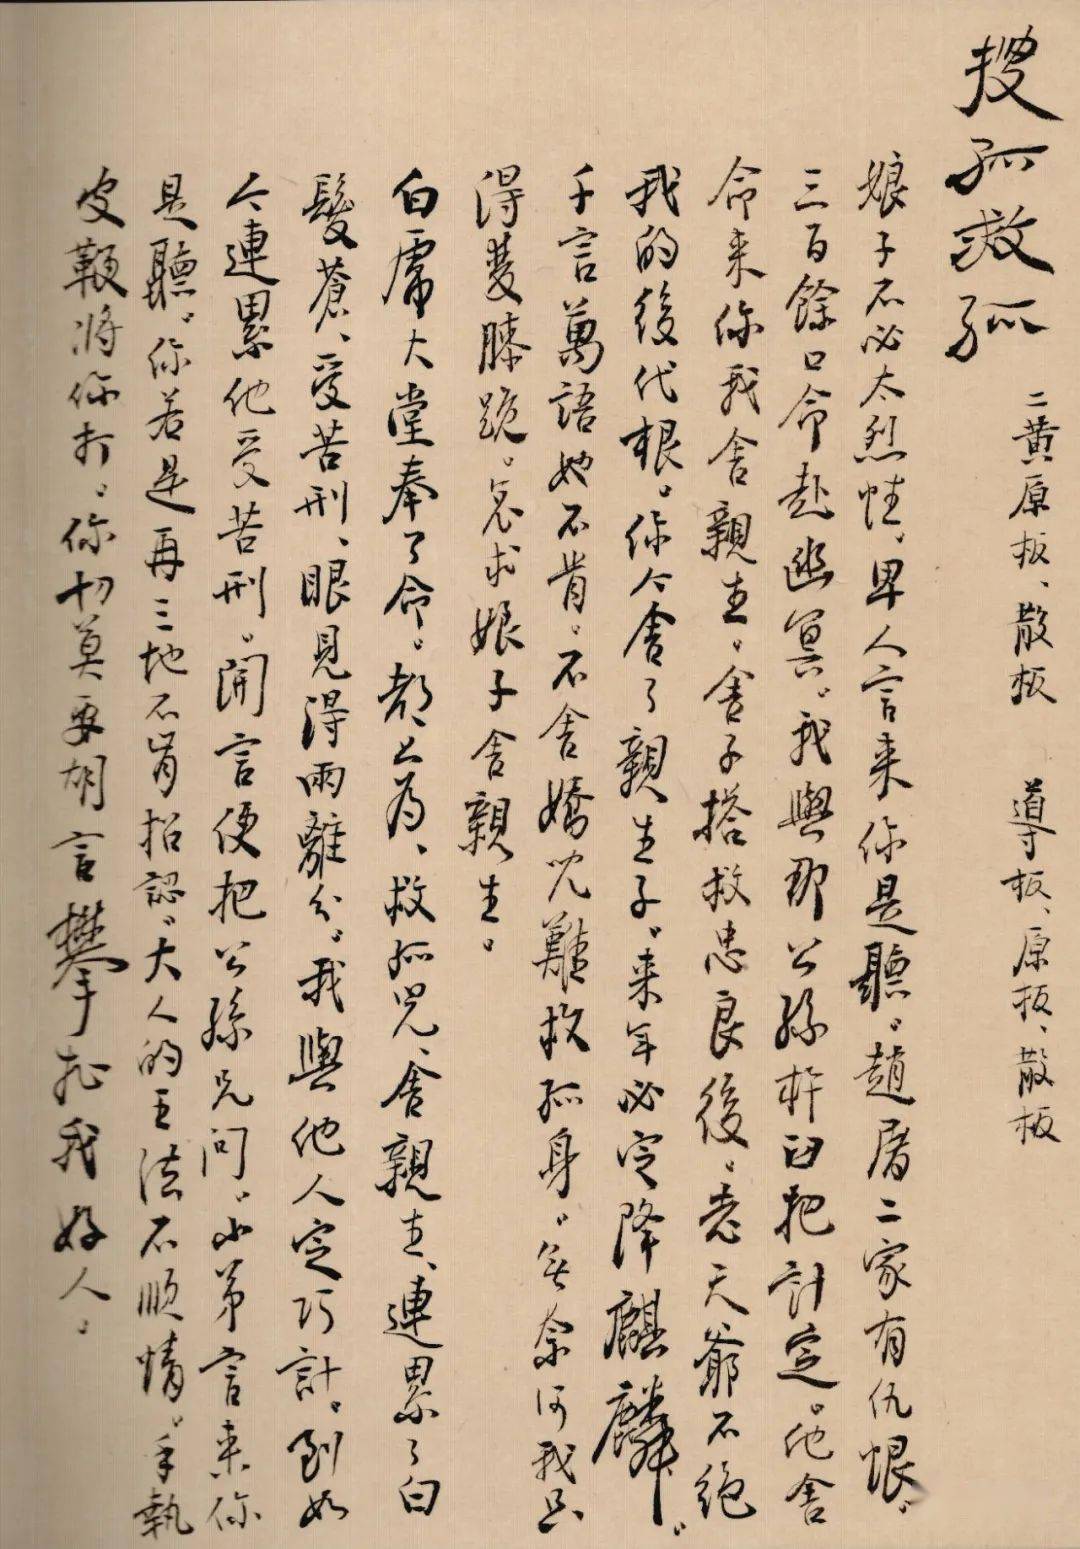 搜孤救孤
二黄原板、散板 導板、原板、散板
娘子不必太烈性、卑人言来你是聽。趙屠二家有仇恨。
三百餘口命赴幽冥。我與那公孫杵臼把計定。他舍
命来你我舍親生。舍子搭救忠良後。老天爺不絕
我的後代根。你今舍了親生子。来年必定降麒麟。
千言萬語她不肯。不舍嬌兒難救孤身。無奈何我只
得雙膝跪。哀求娘子舍親生。
白虎大堂奉了命。都只為、救孤兒、舍親生、連累了白
髮蒼、受苦刑、眼見得兩離分。我與他人定巧計。到如
今連累他受苦刑。開言便把公孫兄問。小弟言来你
是聽。你若是再三地不肯招認。大人的王法不順情。手執
皮鞭將你打。你切莫要胡言攀扯我好人。